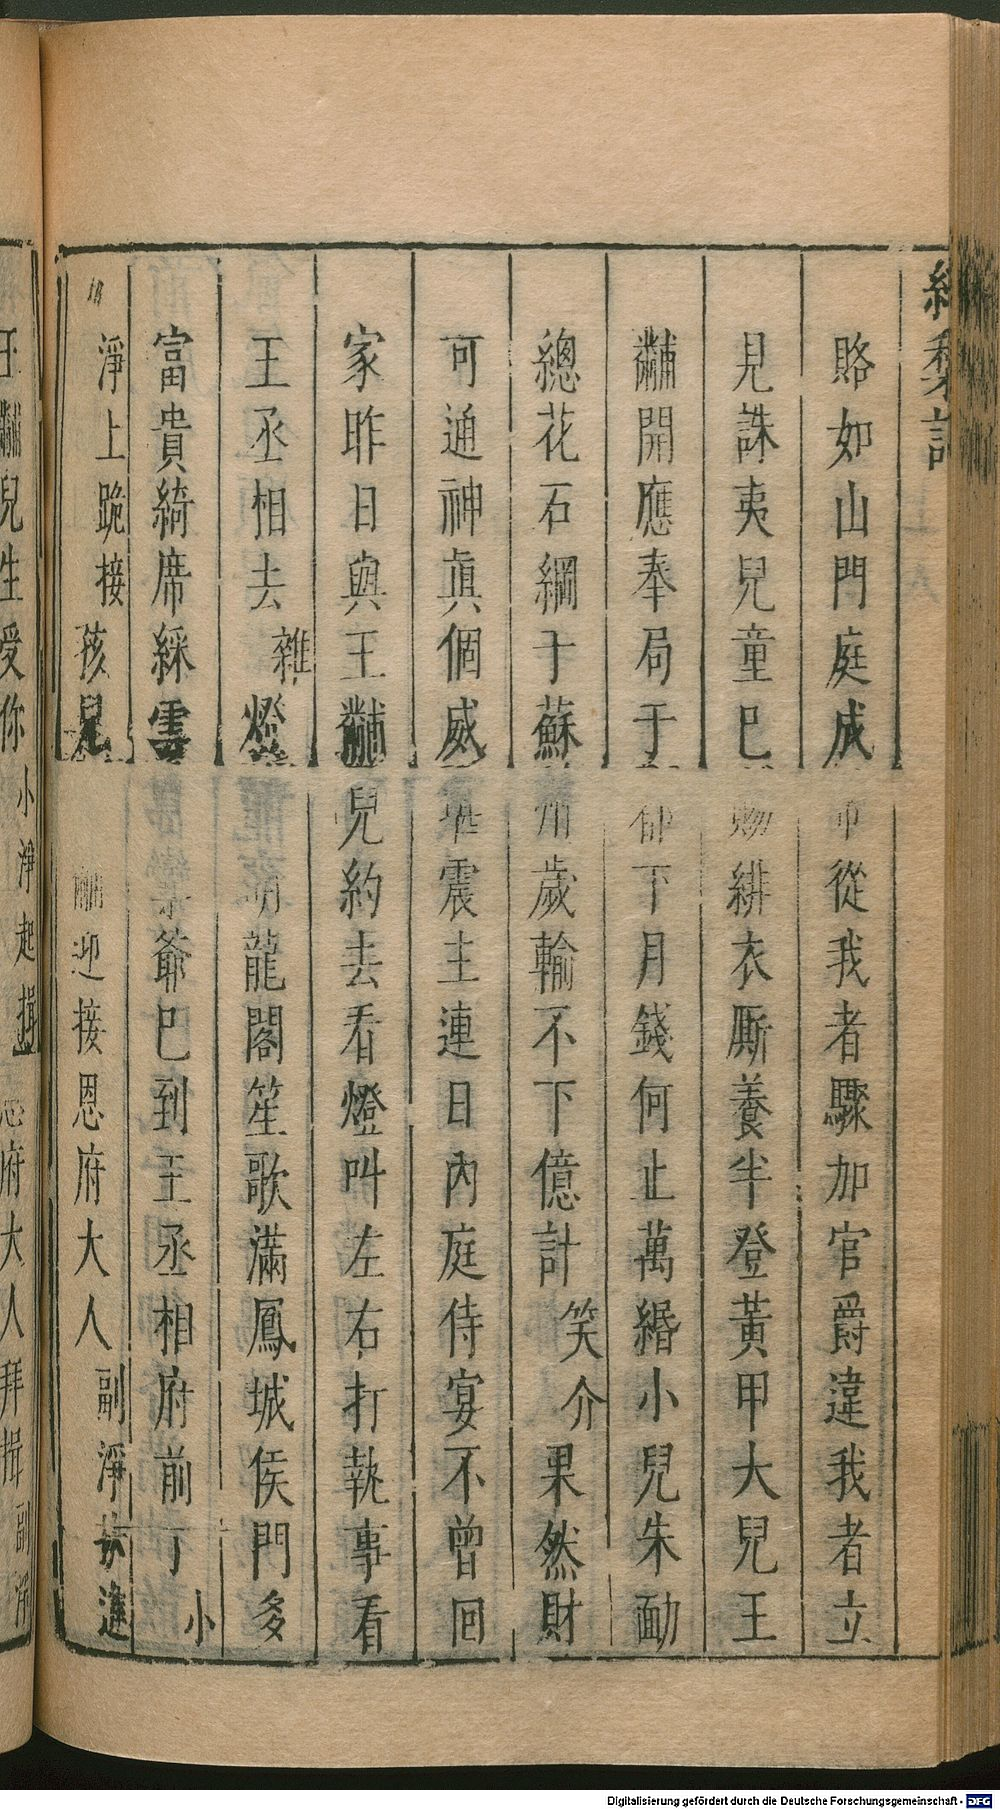 賂如山門庭成市從我者驟加官爵違我者立
見誅夷兒童巳勿緋衣厮養半登黃甲大兒王
黼開應奉局于却下月錢何止萬緡小兒朱勔
總花石綱于蘇州歲輸不下億計笑介果然財
可通神眞個威堪震主連日內庭侍宴不曾回
家昨日與王黼兒約去看燈叫左右打執事看
王丞相去雜燈明龍閣笙歌滿鳳城侯門多
富貴綺席綵雲爺巳到王丞相府前了小
淨上跪接孩兒王黼迎接恩府大人副淨扶進
王黼兒生受你小淨起揖恩府大人拜揖副淨
Digitalisierung gefördert durch die Deutsche Forschungsgemeinschaft - DFG